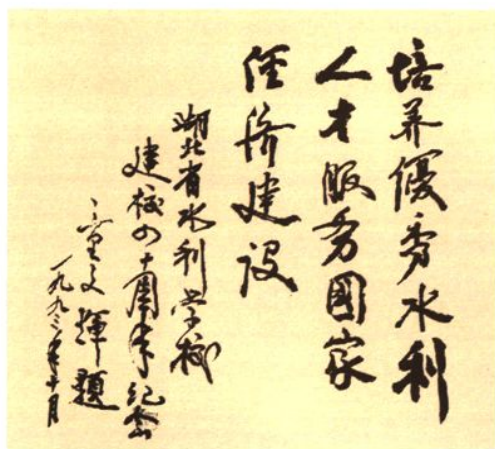 培养優秀水利
人才服务國家
经济建设
湖北省水利学校
建校四十周年纪念
童文輝題
一九九二年十月